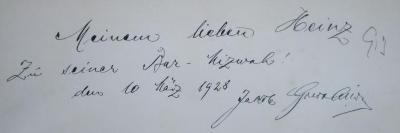 Meinem lieben Heinz
Zu seiner Bar-Mizwah!
den 10 März 1928
Jacob